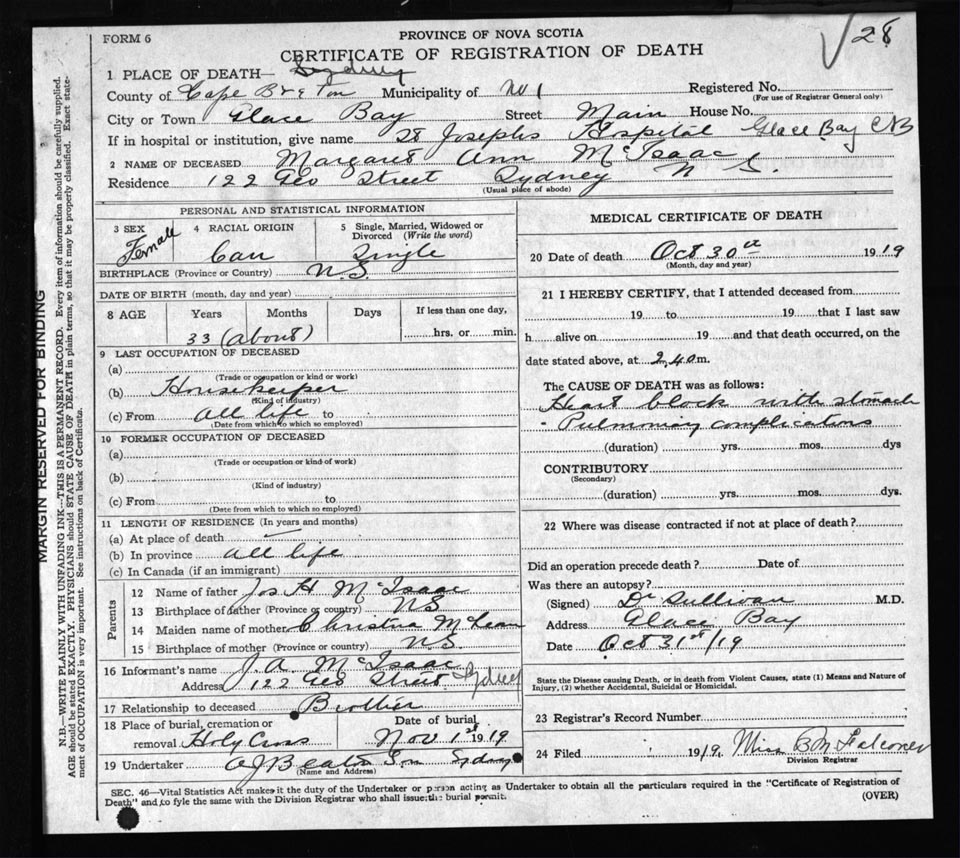 28
FORM 6
PROVINCE OF NOVA SCOTIA
CERTIFICATE OF REGISTRATION OF DEATH
1 PLACE OF DEATH— Sydney
County of Cape Breton Municipality of No 1 Registered No.
(For use of Registrar General only)
City or Town Glace Bay Street Main House No.
If in hospital or institution, give name St Josephs Hospital Glace Bay CB
2 NAME OF DECEASED Margaret Ann McIsaac
Residence 122 Geo Street Sydney N S.
(Usual place of abode)
PERSONAL AND STATISTICAL INFORMATION
3 SEX 4 RACIAL ORIGIN 5 Single, Married, Widowed or Divorced (Write the word)
Female Can Single
BIRTHPLACE (Province or Country) N.S.
DATE OF BIRTH (month, day and year)
8 AGE Years Months Days If less than one day,
33 (about) hrs. or min.
9 LAST OCCUPATION OF DECEASED
(a)
(Trade or occupation or kind or work)
(b) Housekeeper
(Kind of industry)
(c) From all life to
(Date from which to which so employed)
10 FORMER OCCUPATION OF DECEASED
(a)
(Trade or occupation or kind of work)
(b)
(Kind of industry)
(c) From to
(Date from which to which so employed)
11 LENGTH OF RESIDENCE (In years and months)
(a) At place of death
(b) In province all life
(c) In Canada (if an immigrant)
Parents
12 Name of father Jos H McIsaac
13 Birthplace of father (Province or country) NS
14 Maiden name of mother Christina McLean
15 Birthplace of mother (Province or country) N.S.
16 Informant's name J. A. McIsaac
Address 122 Geo Street Sydney
17 Relationship to deceased Brother
18 Place of burial, cremation or removal Holy Cross Date of burial Nov 1st 1919
19 Undertaker A J Beaton Son Sydney
(Name and Address)
MEDICAL CERTIFICATE OF DEATH
20 Date of death Oct 30th 1919
(Month, day and year)
21 I HEREBY CERTIFY, that I attended deceased from
19 to 19 that I last saw
h alive on 19 and that death occurred, on the
date stated above, at 2,40 m.
The CAUSE OF DEATH was as follows:
Heart block with stomach
- Pulmonary complications
(duration) yrs. mos. dys
CONTRIBUTORY
(Secondary)
(duration) yrs. mos. dys.
22 Where was disease contracted if not at place of death?
Did an operation precede death? Date of
Was there an autopsy?
(Signed) Dr Sullivan M.D.
Address Glace Bay
Date Oct 31st/19
State the Disease causing Death, or in death from Violent Causes, state (1) Means and Nature of
Injury, (2) whether Accidental, Suicidal or Homicidal.
23 Registrar's Record Number
24 Filed 1919 Miss B M Falconer
Division Registrar
SEC. 46—Vital Statistics Act makes it the duty of the Undertaker or person acting as Undertaker to obtain all the particulars required in the "Certificate of Registration of
Death" and to fyle the same with the Division Registrar who shall issue the burial permit. (OVER)
MARGIN RESERVED FOR BINDING
N.B.—WRITE PLAINLY WITH UNFADING INK—THIS IS A PERMANENT RECORD. Every item of information should be carefully supplied.
AGE should be stated EXACTLY. PHYSICIANS should STATE CAUSE OF DEATH in plain terms, so that it may be properly classified. Exact state-
ment of OCCUPATION is very important. See instructions on back of Certificate.